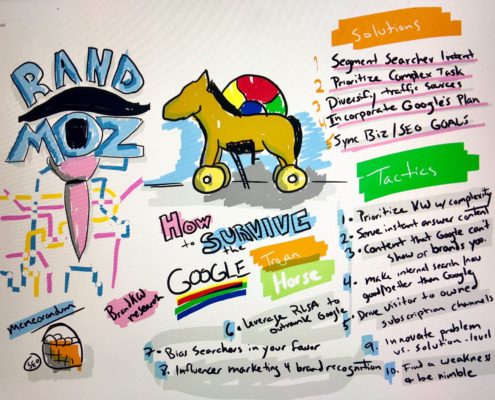 RAND
MOZ
memorandum
SEO
Brand KW
research
How
to SURVIVE
the
GOOGLE
Trojan
Horse
Solutions
1 Segment Searcher Intent
2 Prioritize Complex Task
3 Diversify traffic sources
4 Incorporate Google's Plan
5 Sync Biz/SEO GOALS
Tactics
1. Prioritize KW w/ complexity
2. Serve instant answer content
3. Content that Google can't
show or brands you.
4. make internal search how
good/better than Google
5 Drive visitor to owned
subscription channels
6. Leverage RLSA to
outrank Google
7. Bias Searchers in your favor
8. Influencer marketing 4 brand recognition
9. Innovate problem
vs. solution-level
10. Find a weakness
& be nimble